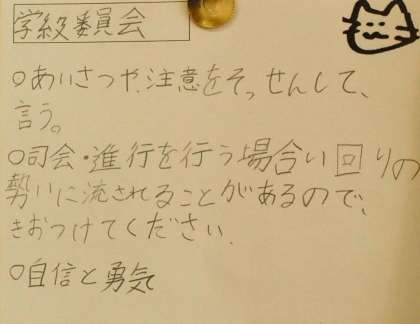 学級委員会
○あいさつや、注意をそっせんして、
言う。
○司会・進行を行う場合い回りの
勢いに流されることがあるので、
きおつけてください。
○自信と勇気